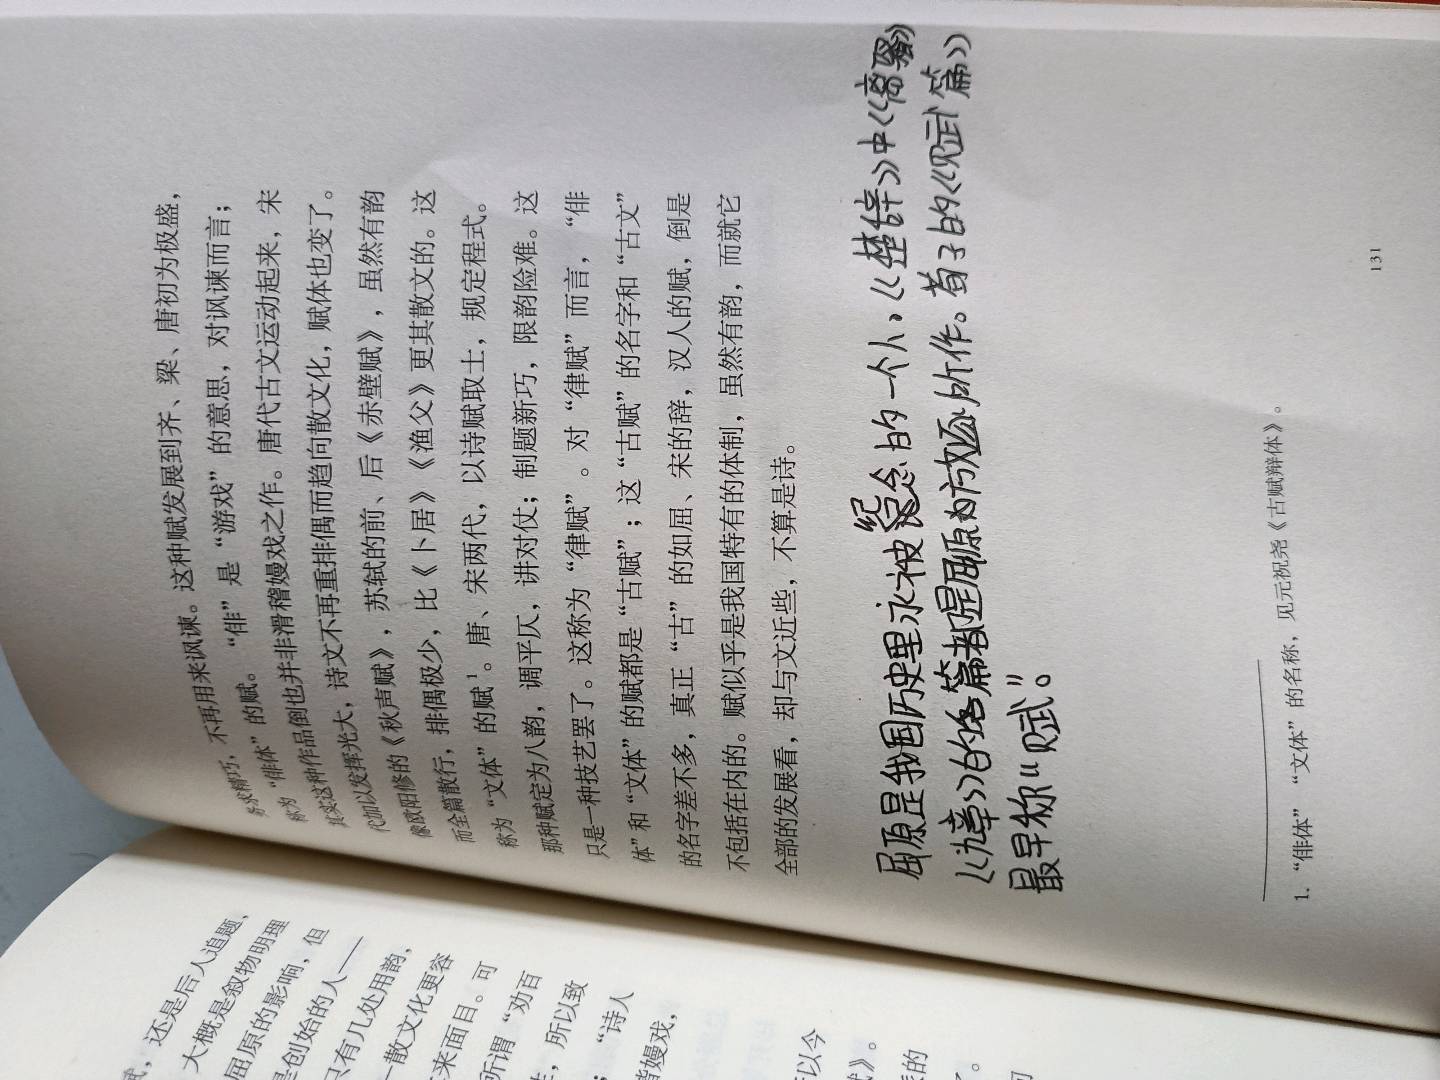 务求精巧，不再用来讽谏。这种赋发展到齐、梁、唐初为极盛，
称为“俳体”的赋。“俳”是“游戏”的意思，对讽谏而言；
其实这种作品倒也并非滑稽嫚戏之作。唐代古文运动起来，宋
代加以发挥光大，诗文不再重排偶而趋向散文化，赋体也变了。
像欧阳修的《秋声赋》，苏轼的前、后《赤壁赋》，虽然有韵
而全篇散行，排偶极少，比《卜居》《渔父》更其散文的。这
称为“文体”的赋1。唐、宋两代，以诗赋取士，规定程式。
那种赋定为八韵，调平仄，讲对仗；制题新巧，限韵险难。这
只是一种技艺罢了。这称为“律赋”。对“律赋”而言，“俳
体”和“文体”的赋都是“古赋”；这“古赋”的名字和“古文”
的名字差不多，真正“古”的如屈、宋的辞，汉人的赋，倒是
不包括在内的。赋似乎是我国特有的体制，虽然有韵，而就它
全部的发展看，却与文近些，不算是诗。
屈原是我国历史里永被纪念的一个人，《楚辞》中《离骚》
《九章》的各篇都是屈原为放逐所作。荀子的《赋篇》
最早称“赋”。
1. “俳体”“文体”的名称，见元祝尧《古赋辩体》。
131
还是后人追题，
大概是叙物明理
屈原的影响，但
是创始的人——
只有几处用韵，
散文化更容
来面目。可
所谓“劝百
，所以致
；“诗人
嫚戏，
以今